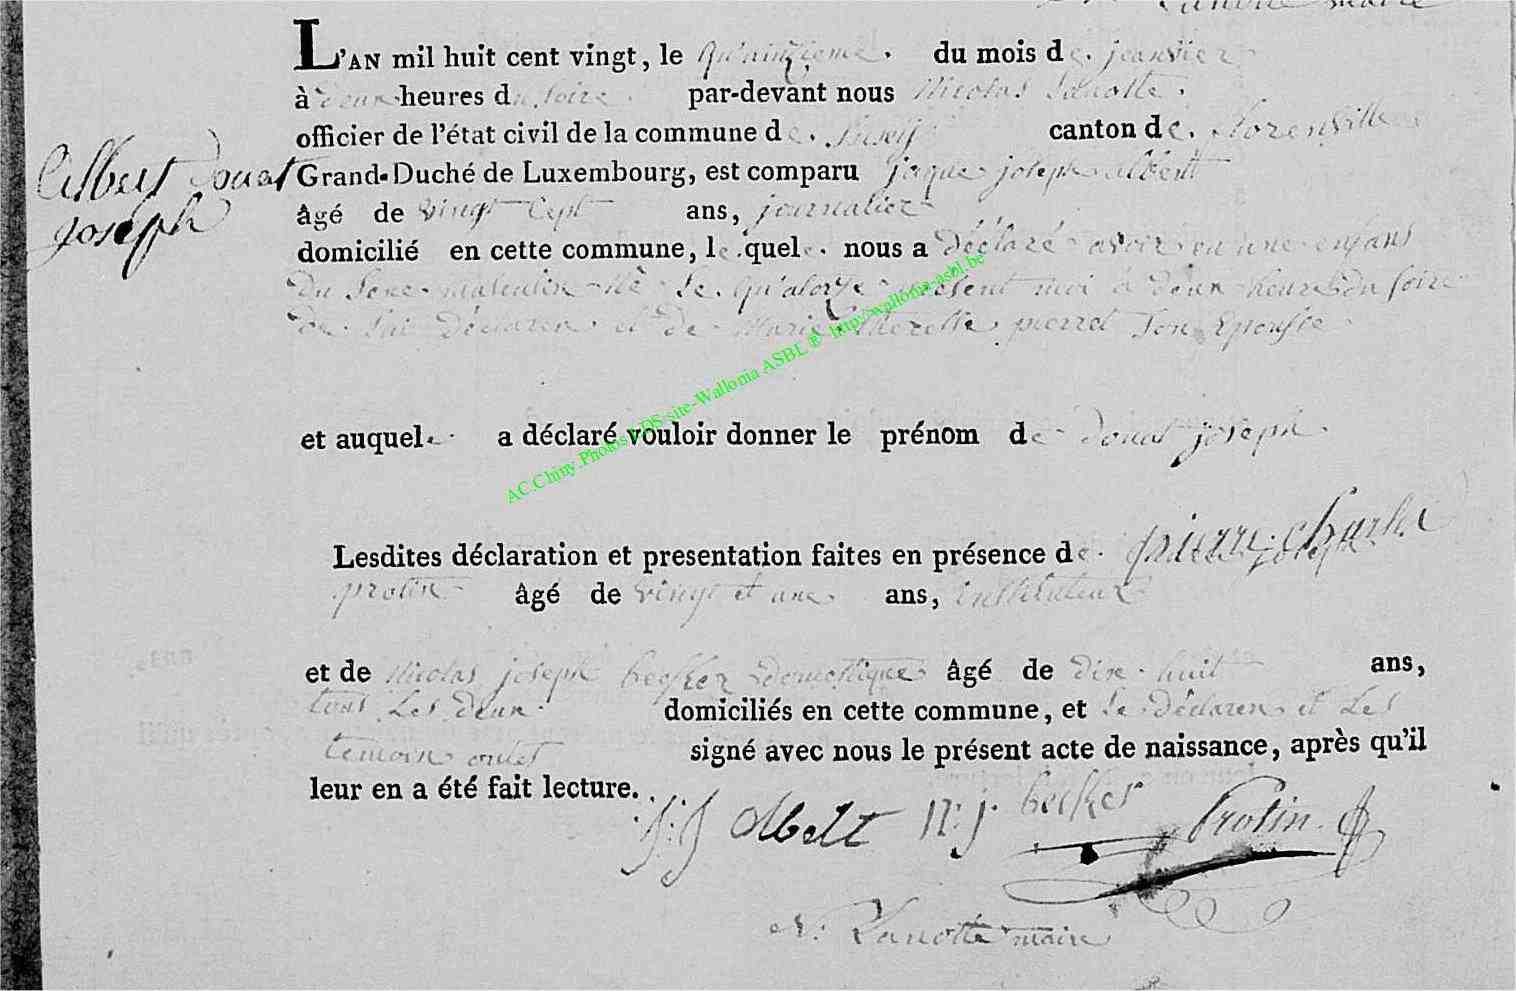 Lanotte maire
L'AN mil huit cent vingt, le quainzieme. du mois de. jeanvier
à deux heures du soire. par-devant nous Nicolas Lanotte.
officier de l'état civil de la commune de. canton de. florenville
Albert Donat
joseph
Grand-Duché de Luxembourg, est comparu jaque joseph albert
âgé de vingt sept ans, journalier
domicilié en cette commune, le quel. nous a déclaré avoir eu une enfans
du sexe masculin né le quatorze present moi à deux heure du soire
de lui déclaren et de Marie theresse pierret son Epousse
et auquel a déclaré vouloir donner le prénom de donat joseph
Lesdites déclaration et presentation faites en présence de. pierre charle
joseph
protin âgé de vingt et une ans, instituteur
et de Nicolas joseph becker domestique âgé de dix huit ans,
tous Les deux domiciliés en cette commune, et le déclaren et Les
temoin ontet signé avec nous le présent acte de naissance, après qu'il
leur en a été fait lecture.
j:j Albert N:j. becker Protin
N. Lanotte maire
AC.Chiny.Photos LDS-site-Wallonia ASBL ® http:/wallonia-asbl.be